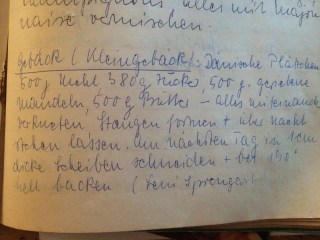 alles mit Majo
naise vermischen.
Gebäck (Kleingebäck): Dänische Plättchen
500g Mehl 380g Zucker, 500 g. geriebene
Mandeln, 500 g Butter – alles miteinander
verkneten. Stangen formen + über Nacht
stehen lassen. Am nächsten Tag in 1cm
dicke Scheiben schneiden + bei 190°
hell backen (